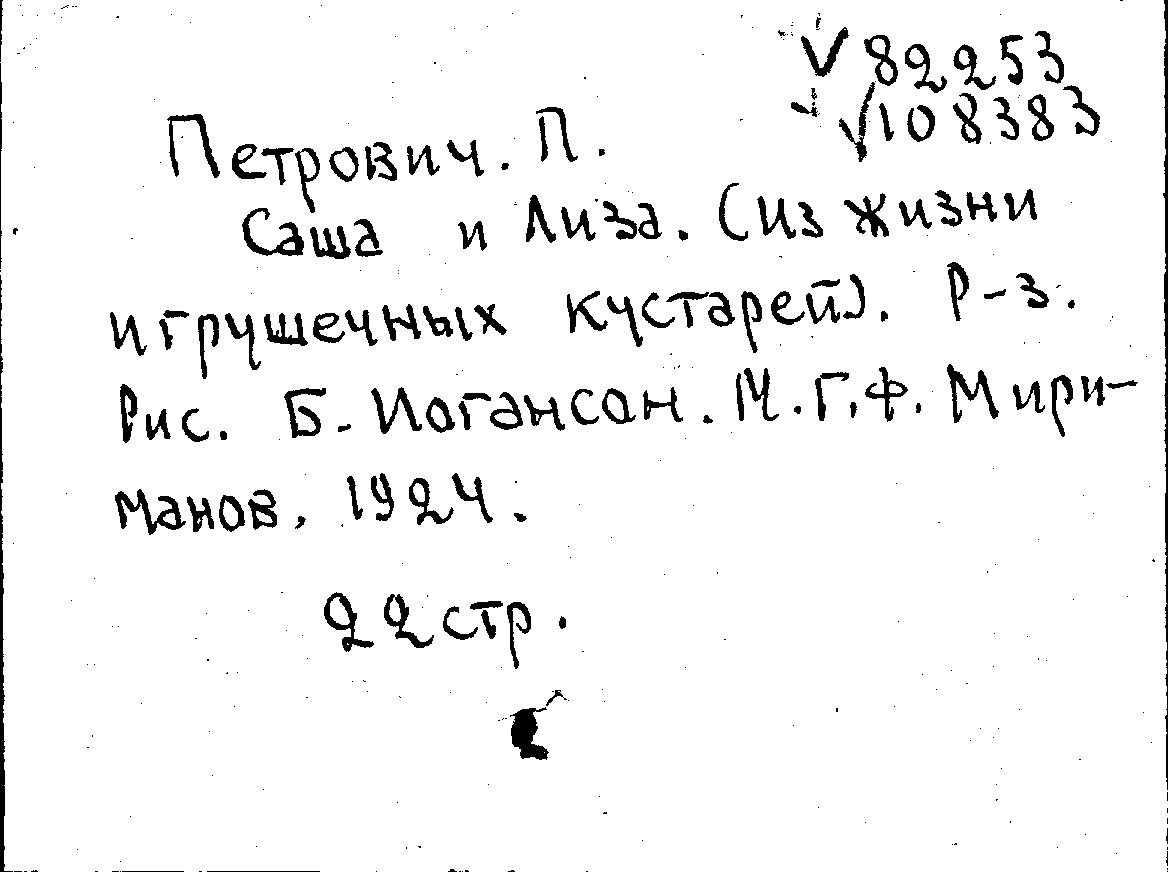 √ 82253
√ 108383
Петрович. П.
Саша и Лиза. (из жизни
игрушечных кустарей). Р-з.
Рис. Б. Иогансон. М. Г.Ф. Мири-
манов. 1924.
22 стр.